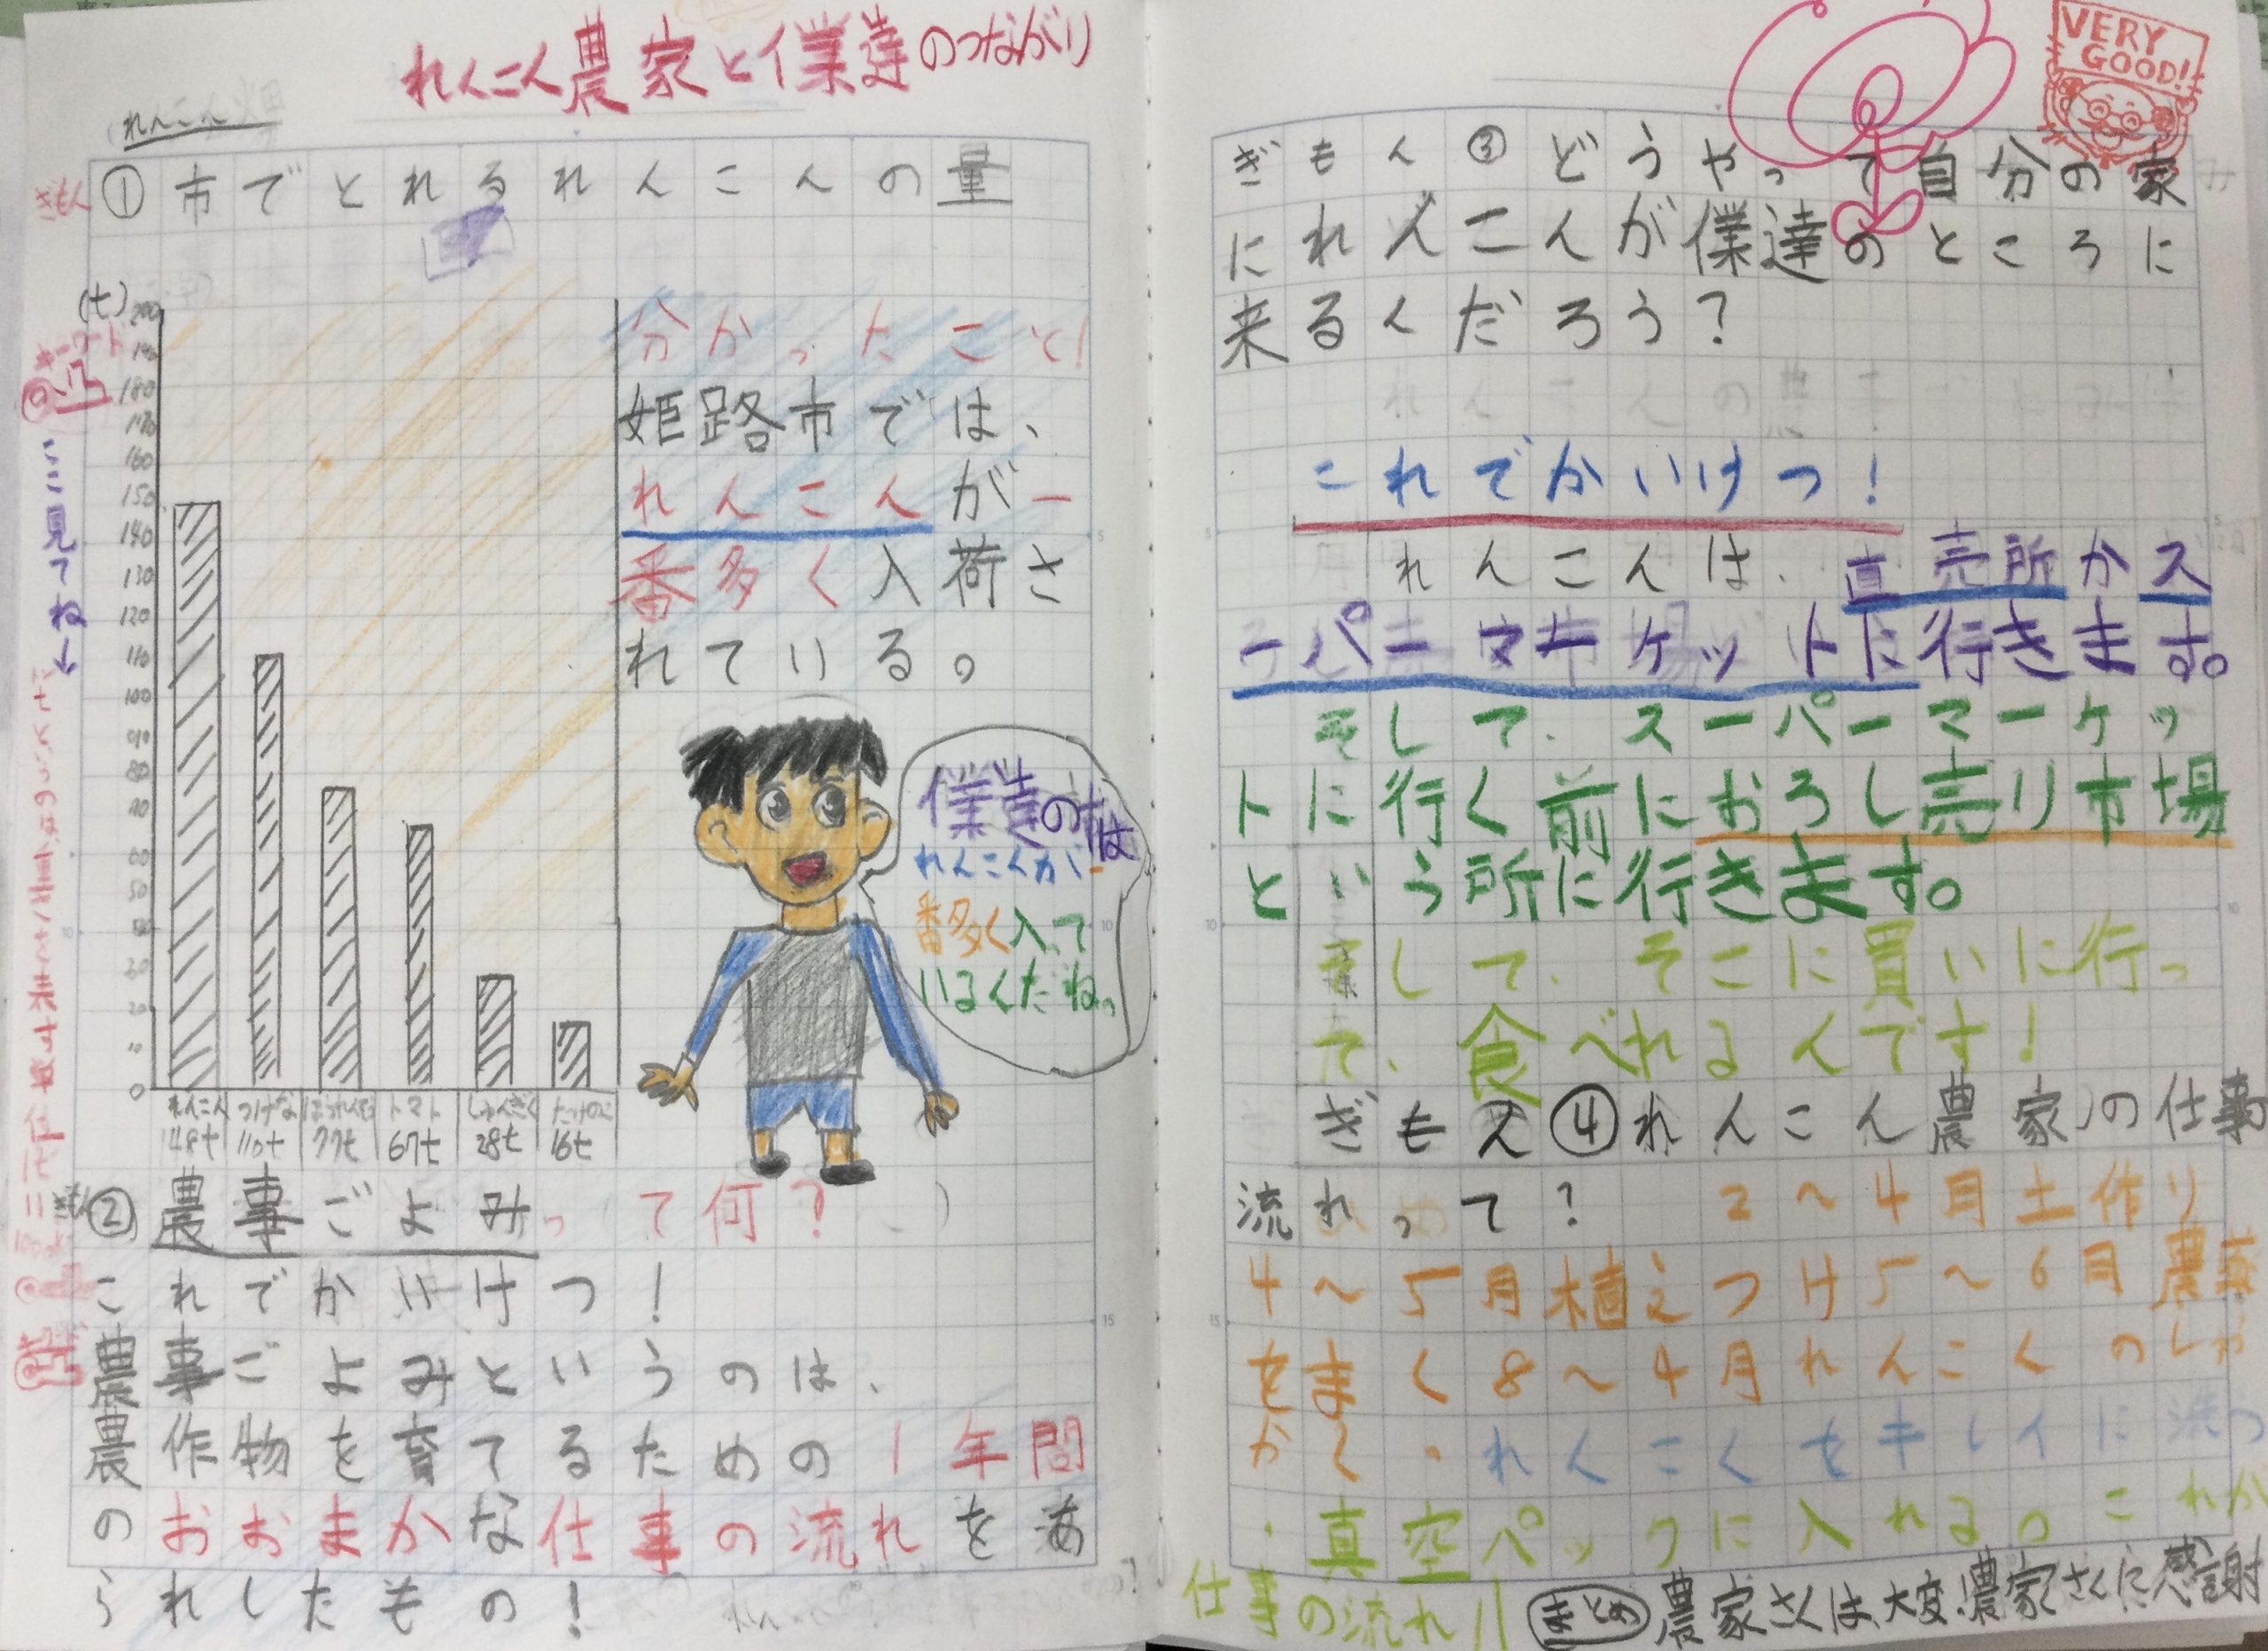 れんこん農家と僕達のつながり
れんこん畑
ぎもん
① 市でとれるれんこんの量
(t)
200
180
170
160
150
140
130
120
110
100
90
80
60
50
20
10
0
れんこん つけな ほうれんそう トマト しゅんぎく たけのこ
148t 110t 77t 67t 28t 16t
分かったこと!
姫路市では、
れんこんが一
番多く入荷さ
れている。
僕達の市は
れんこんが一
番多く入って
いるんだね。
キーワード
ここ見てね←
ぎもん
② 農事ごよみって何?
これでかいけつ!
農事ごよみというのは、
農作物を育てるための1年間
のおおまかな仕事の流れをあ
られしたもの!
VERY
GOOD!
ぎもん③どうやって自分の家
にれんこんが僕達のところに
来るんだろう?
これでかいけつ!
れんこんは、直売所かス
ーパーマーケットに行きます。
そして、スーパーマーケッ
トに行く前におろし売り市場
という所に行きます。
そして、そこに買いに行っ
て、食べれるんです!
ぎもん④れんこん農家の仕事
流れって? 2〜4月土作り
4〜5月植えつけ5〜6月農薬
をまく8〜4月れんこんのしゅ
かく・れんこんをキレイに洗う
・真空パックに入れる。これが
仕事の流れ!!
まとめ 農家さんは、大変。農家さんに感謝